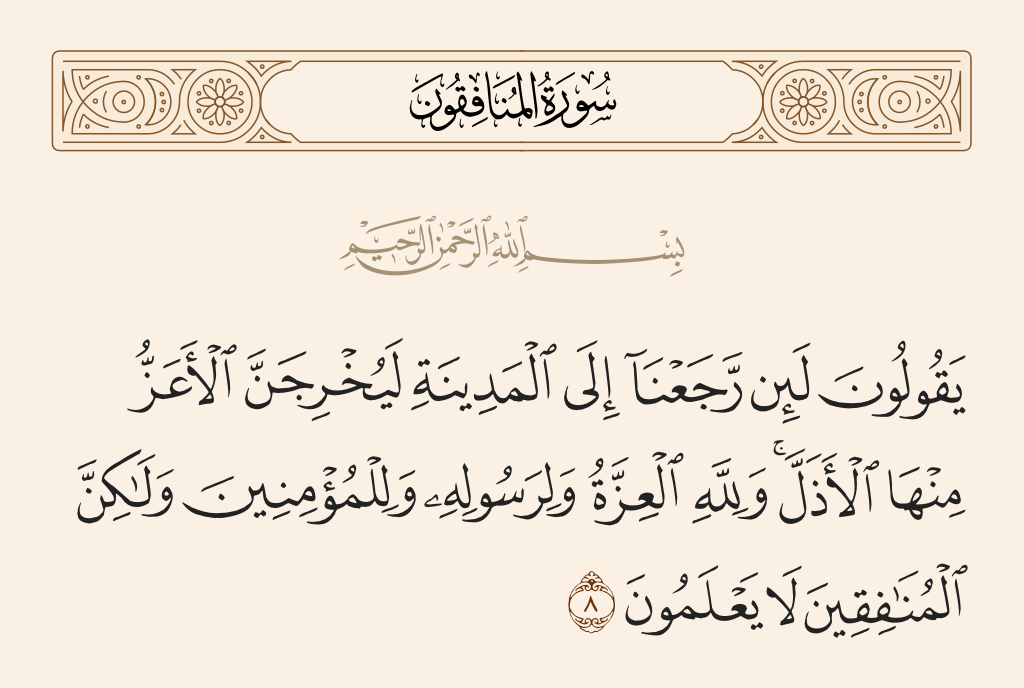 سُورَةُ المُنَافِقُونَ
بِسْمِ ٱللَّهِ ٱلرَّحْمَٰنِ ٱلرَّحِيمِ
يَقُولُونَ لَئِن رَّجَعْنَآ إِلَى ٱلْمَدِينَةِ لَيُخْرِجَنَّ ٱلْأَعَزُّ
مِنْهَا ٱلْأَذَلَّ ۚ وَلِلَّهِ ٱلْعِزَّةُ وَلِرَسُولِهِۦ وَلِلْمُؤْمِنِينَ وَلَٰكِنَّ
ٱلْمُنَٰفِقِينَ لَا يَعْلَمُونَ ٨